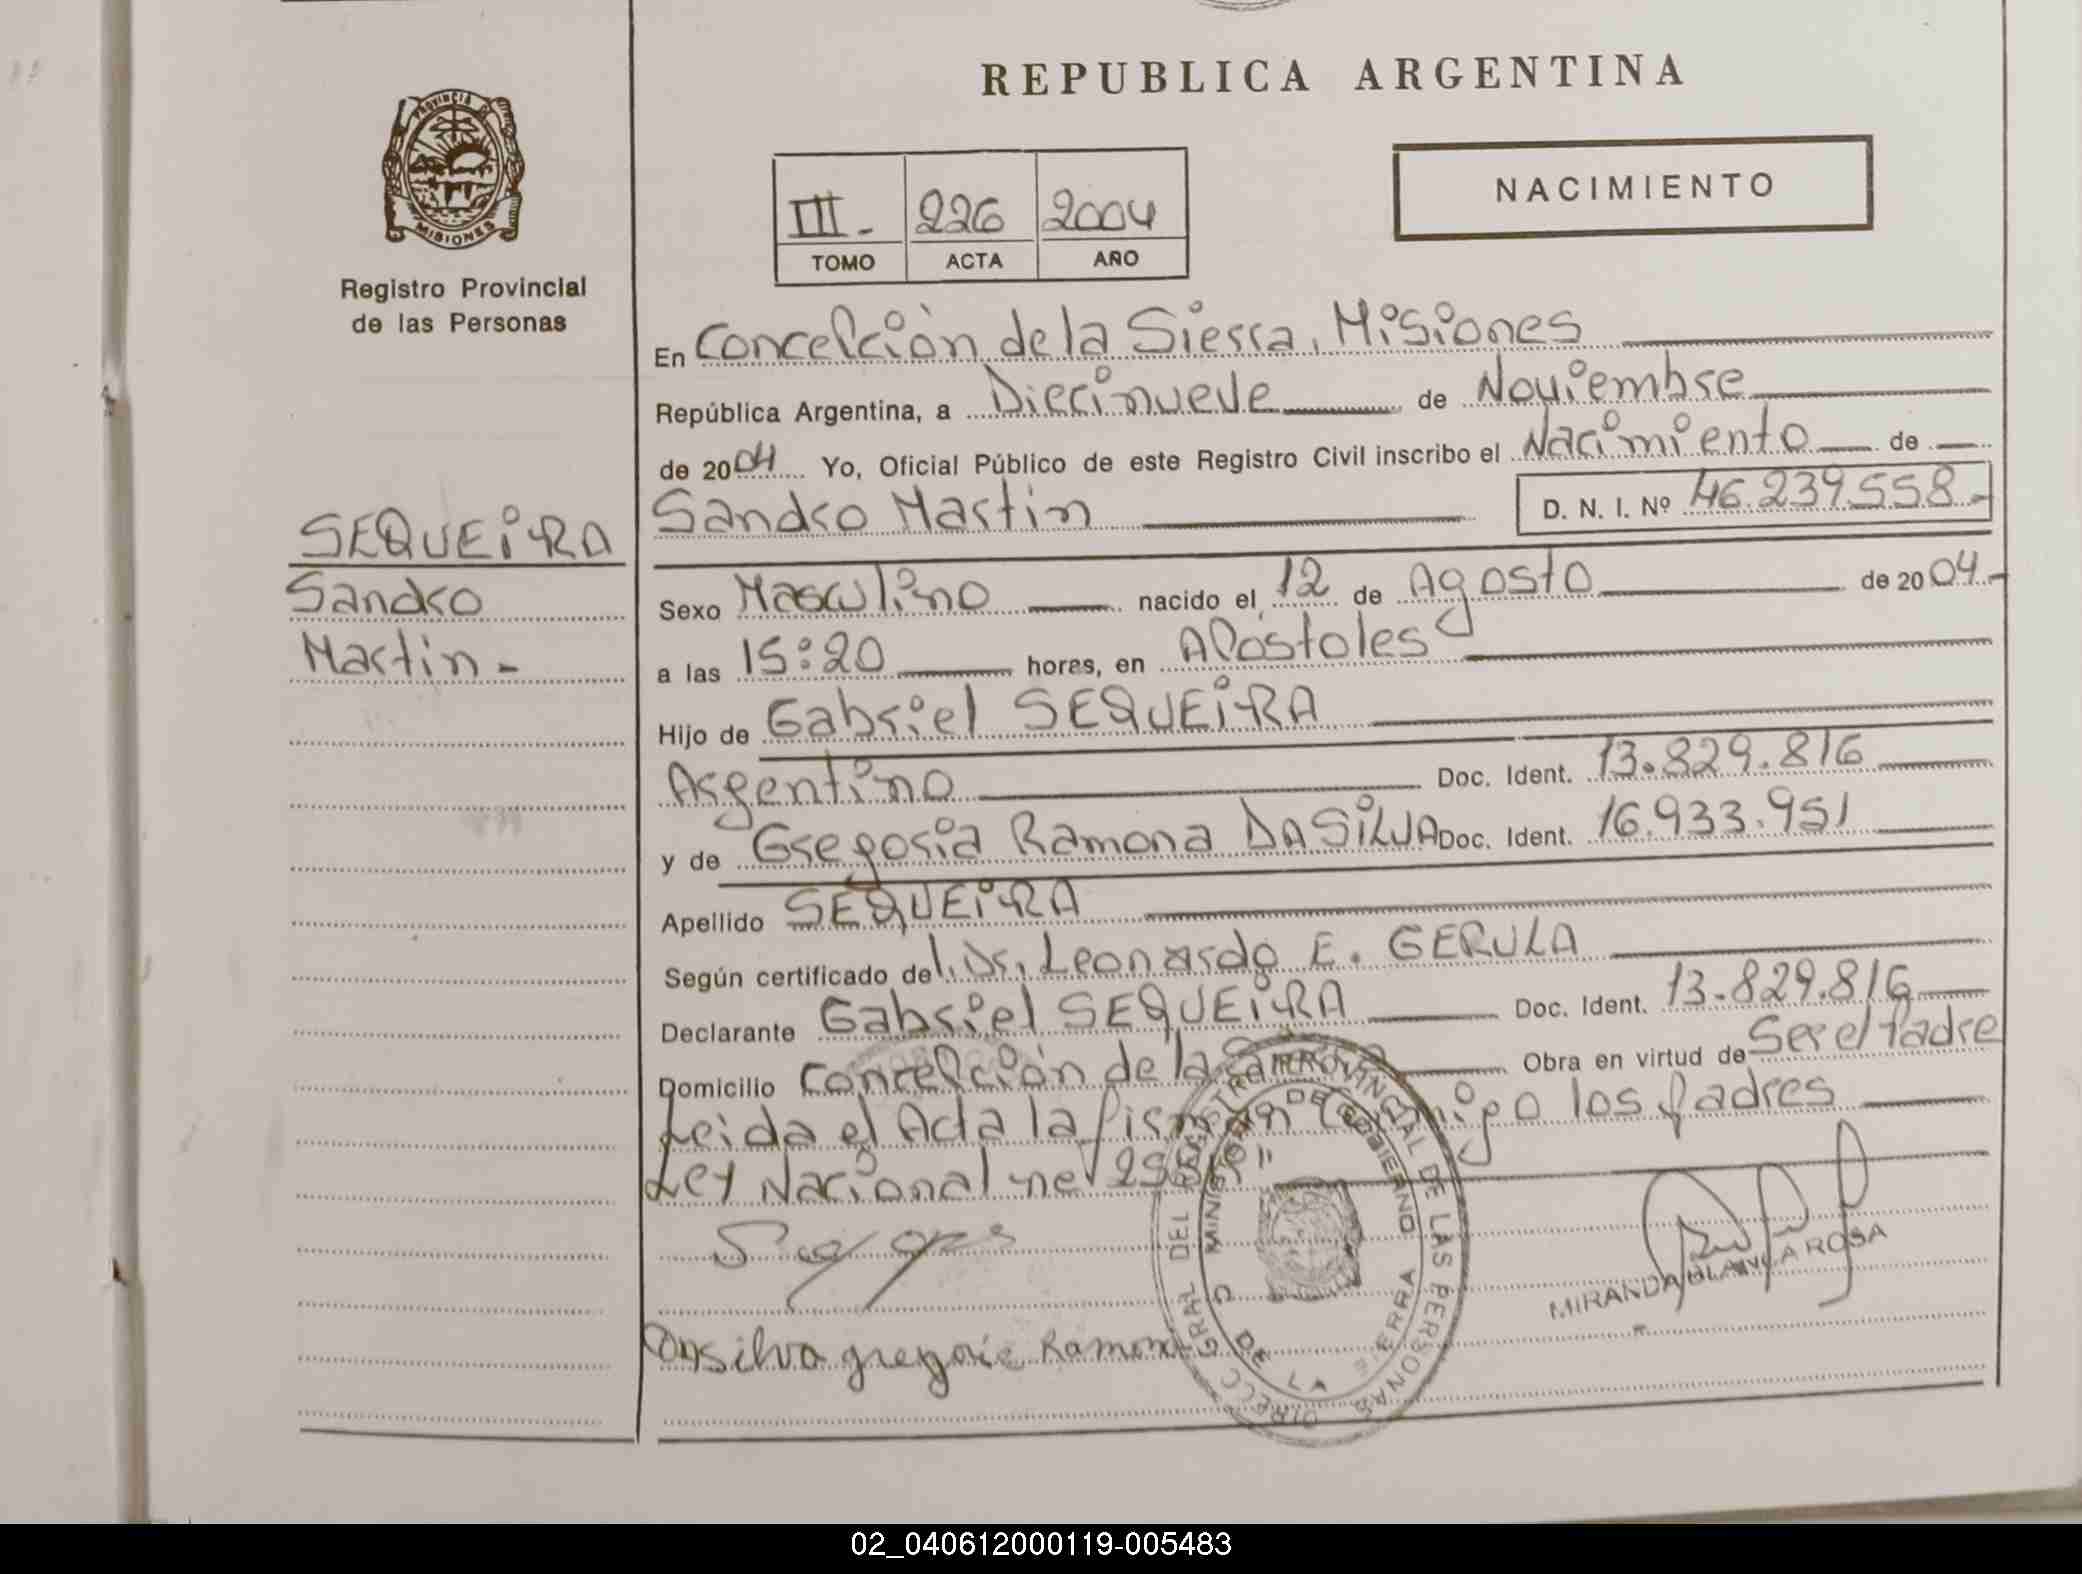 REPUBLICA ARGENTINA
PROVINCIA DE
MISIONES
Registro Provincial
de las Personas
III.- 226 2004
TOMO ACTA AÑO
NACIMIENTO
En Concepción de la Sierra, Misiones
República Argentina, a Diecinueve de Noviembre
de 2004 Yo, Oficial Público de este Registro Civil inscribo el Nacimiento de
SEQUEIRA
Sandro
Martin -
Sandro Martin D. N. I. Nº 46.239.558.-
Sexo Masculino nacido el 12 de Agosto de 2004.-
a las 15:20 horas, en Apostoles
Hijo de Gabriel SEQUEIRA
Argentino Doc. Ident. 13.829.816
y de Gregoria Ramona DA SILVA Doc. Ident. 16.933.951
Apellido SEQUEIRA
Según certificado del Dr. Leonardo E. GERULA
Declarante Gabriel SEQUEIRA Doc. Ident. 13.829.816
Domicilio Concepción de la Sierra Obra en virtud de Ser el Padre
Leida el Acta la firman conmigo los padres
Ley Nacional
Dasilva gregoria Ramona
MIRANDA BLANCA ROSA
DIRECC GRAL DEL REGISTRO PROVINCIAL DE LAS PERSONAS
MINISTERIO DE GOBIERNO
C. DE LA SIERRA
02_040612000119-005483